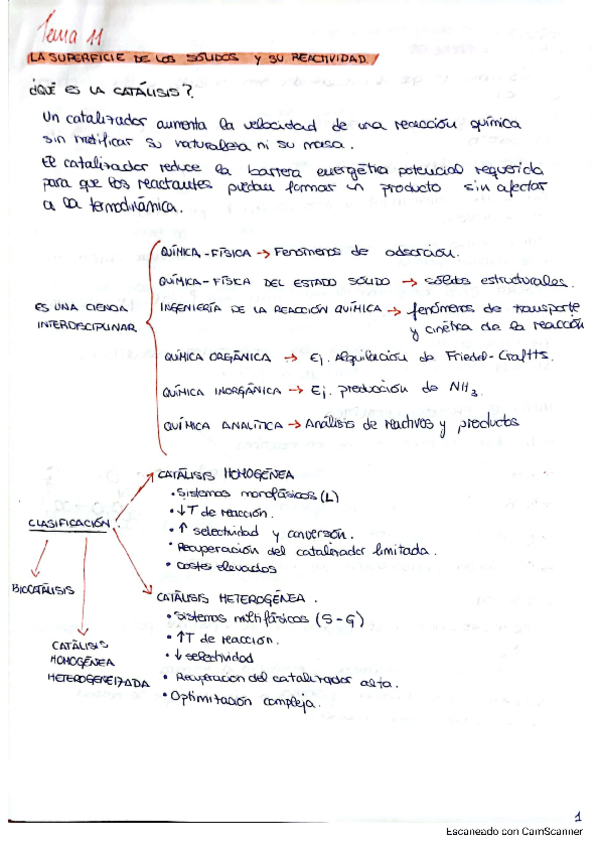 Tema 11
LA SUPERFICIE DE LOS SÓLIDOS Y SU REACTIVIDAD
¿QUÉ ES LA CATÁLISIS?
Un catalizador aumenta la velocidad de una reacción química
sin modificar su naturaleza ni su masa.
El catalizador reduce la barrera energética potencial requerida
para que los reactantes puedan formar un producto sin afectar
a la termodinámica.
ES UNA CIENCIA
INTERDISCIPLINAR
QUÍMICA-FÍSICA → Fenómenos de adsorción.
QUÍMICA-FÍSICA DEL ESTADO SÓLIDO → sólidos estructurales.
INGENIERÍA DE LA REACCIÓN QUÍMICA → fenómenos de transporte
y cinética de la reacción
QUÍMICA ORGÁNICA → Ej. Alquilación de Friedel-Craftts.
QUÍMICA INORGÁNICA → Ej. producción de NH₃.
QUÍMICA ANALÍTICA → Análisis de reactivos y productos
CLASIFICACIÓN:
CATÁLISIS HOMOGÉNEA
• Sistemas monofásicos (L)
• ↓T de reacción.
• ↑ selectividad y conversión.
• Recuperación del catalizador limitada.
• Costes elevados
CATÁLISIS HETEROGÉNEA.
• Sistemas multifásicos (S-G)
• ↑T de reacción.
• ↓ selectividad
• Recuperación del catalizador alta.
• Optimización compleja.
BIOCATÁLISIS
CATÁLISIS
HOMOGÉNEA
HETEROGENEIZADA
1
Escaneado con CamScanner